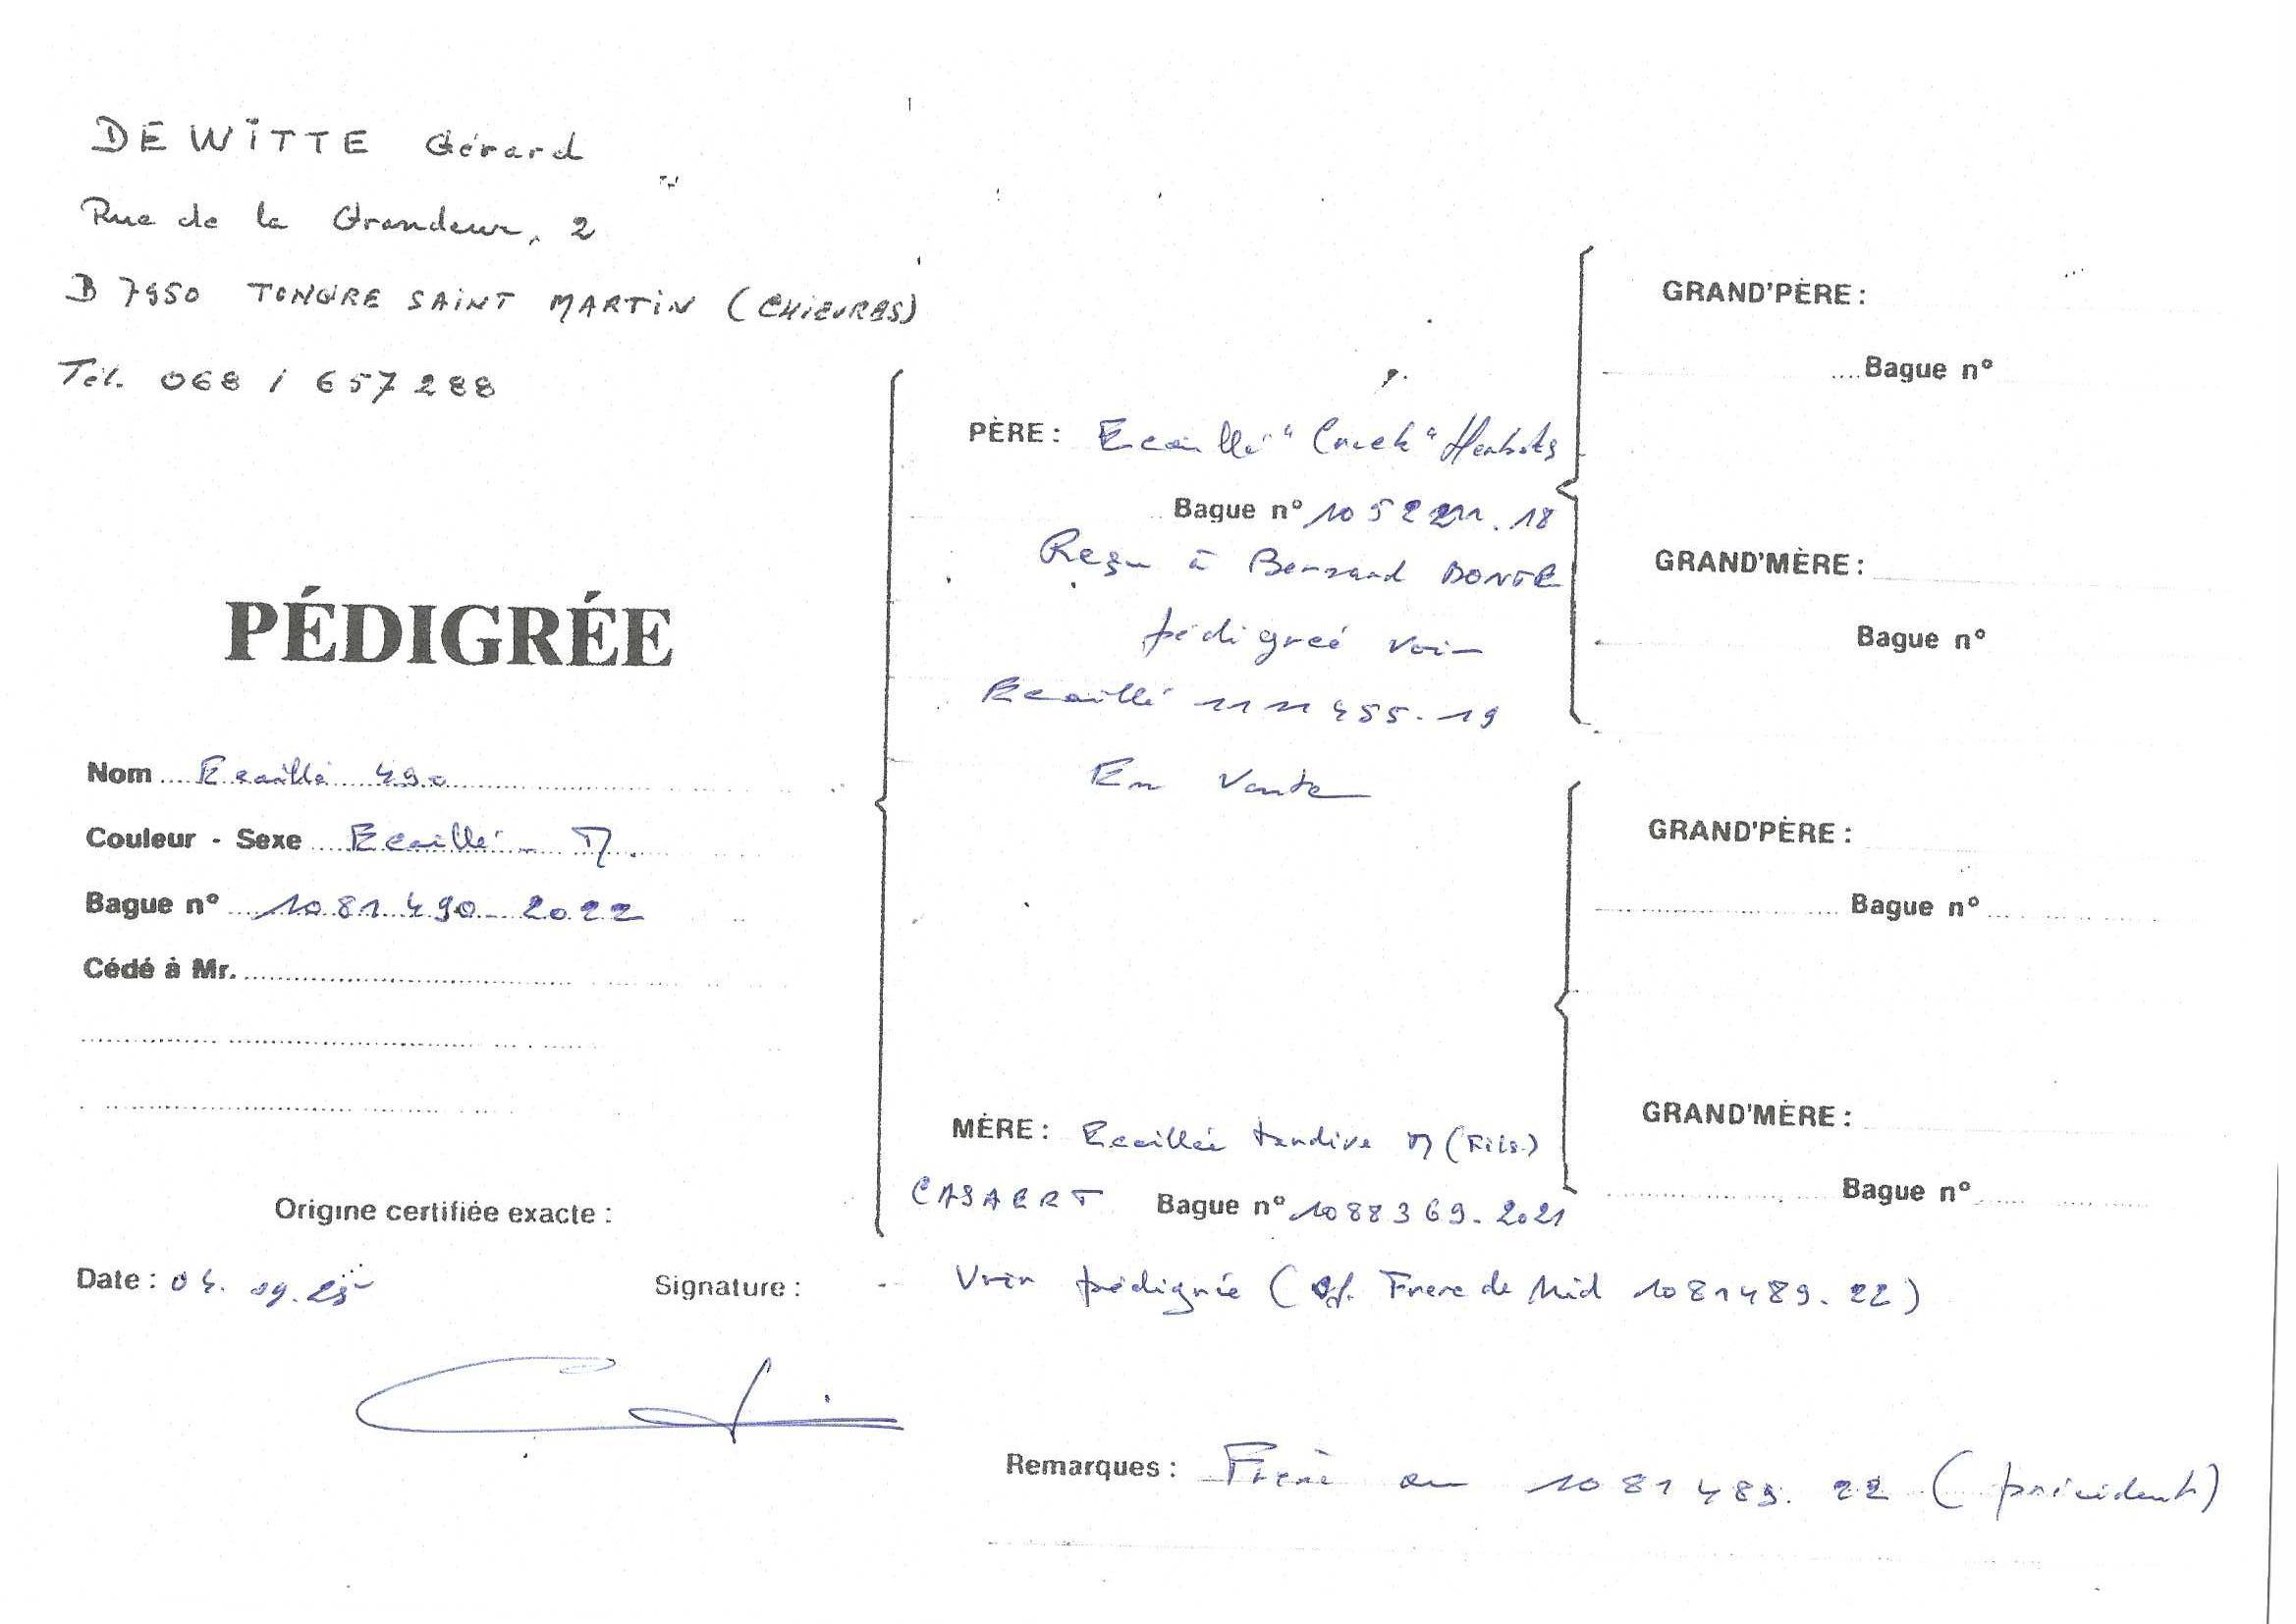 DEWITTE Gérard
Rue de la Grandeur, 2
B 7950 TONGRE SAINT MARTIN (CHIEVRES)
Tél. 068 / 657 288
PÉDIGRÉE
Nom Ecaillé 490
Couleur - Sexe Ecaillé - M.
Bague n° 1081490 - 2022
Cédé à Mr.
Origine certifiée exacte :
Date : 04. 09. 25
Signature :
PÈRE : Ecaillé "Crack" Herbots
Bague n° 1052211. 18
Reçu à Bernard BONTE
pédigreé voir
Ecaillé 1111455. 19
En Vente
MÈRE : Ecaillée tardive M (Fils)
CASAERT Bague n° 1088369. 2021
Voir pédigrée (cf. Frere de Nid 1081489. 22)
GRAND'PÈRE :
Bague n°
GRAND'MÈRE :
Bague n°
GRAND'PÈRE :
Bague n°
GRAND'MÈRE :
Bague n°
Remarques : Frère au 1081489. 22 (précédent)